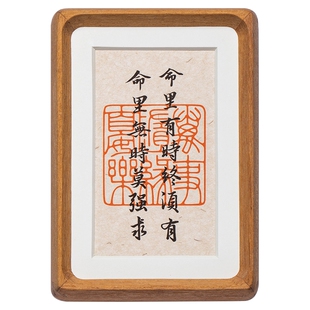 命里有時終須有
命里無時莫强求